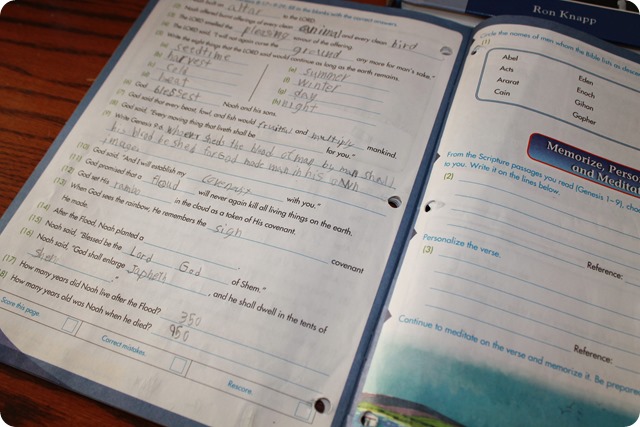 altar to the LORD.
Noah offered burnt offerings of every clean animal and every clean bird
The LORD smelled pleasing savour of the offering.
The LORD said, "I will not again curse the ground any more for man's sake."
Write the eight things that the LORD would continue as long as the earth remains.
(a) seedtime
(b) harvest
(c) cold
(d) heat
(e) summer
(f) winter
(g) day
(h) night
God blessest Noah and his sons.
God said that every beast, fowl, and fish would fruitful and multiply
God said, "Every moving thing that liveth shall be for you." mankind.
Write Genesis 9:6. Whoever sheds the blood of man by man shall
his blood be shed for God made man in his own
image
(10) God said, "And I will establish my covenant with you."
(11) God promised that a Flood will never again kill all living things on the earth.
(12) God set His in the cloud as a token of His covenant.
(13) When God sees the rainbow, He remembers the sign covenant
He made.
(14) After the Flood, Noah planted a
(15) Noah said, "Blessed be the Lord God of Shem."
(16) Noah said, "God shall enlarge Japheth, and he shall dwell in the tents of
Shem."
(17) How many years did Noah live after the Flood? 350
How many years old was Noah when he died? 950
Score this page.
Correct mistakes.
Rescore.
Ron Knapp
Circle the names of men whom the Bible lists as
(1)
Abel
Acts
Ararat
Cain
Eden
Enoch
Gihon
Gopher
Memorize,
and
From the Scripture passages you read (Genesis 1–9),
to you. Write it on the lines below.
(2)
Reference:
Personalize the verse.
(3)
Reference:
Continue to meditate on the verse and memorize it. Be